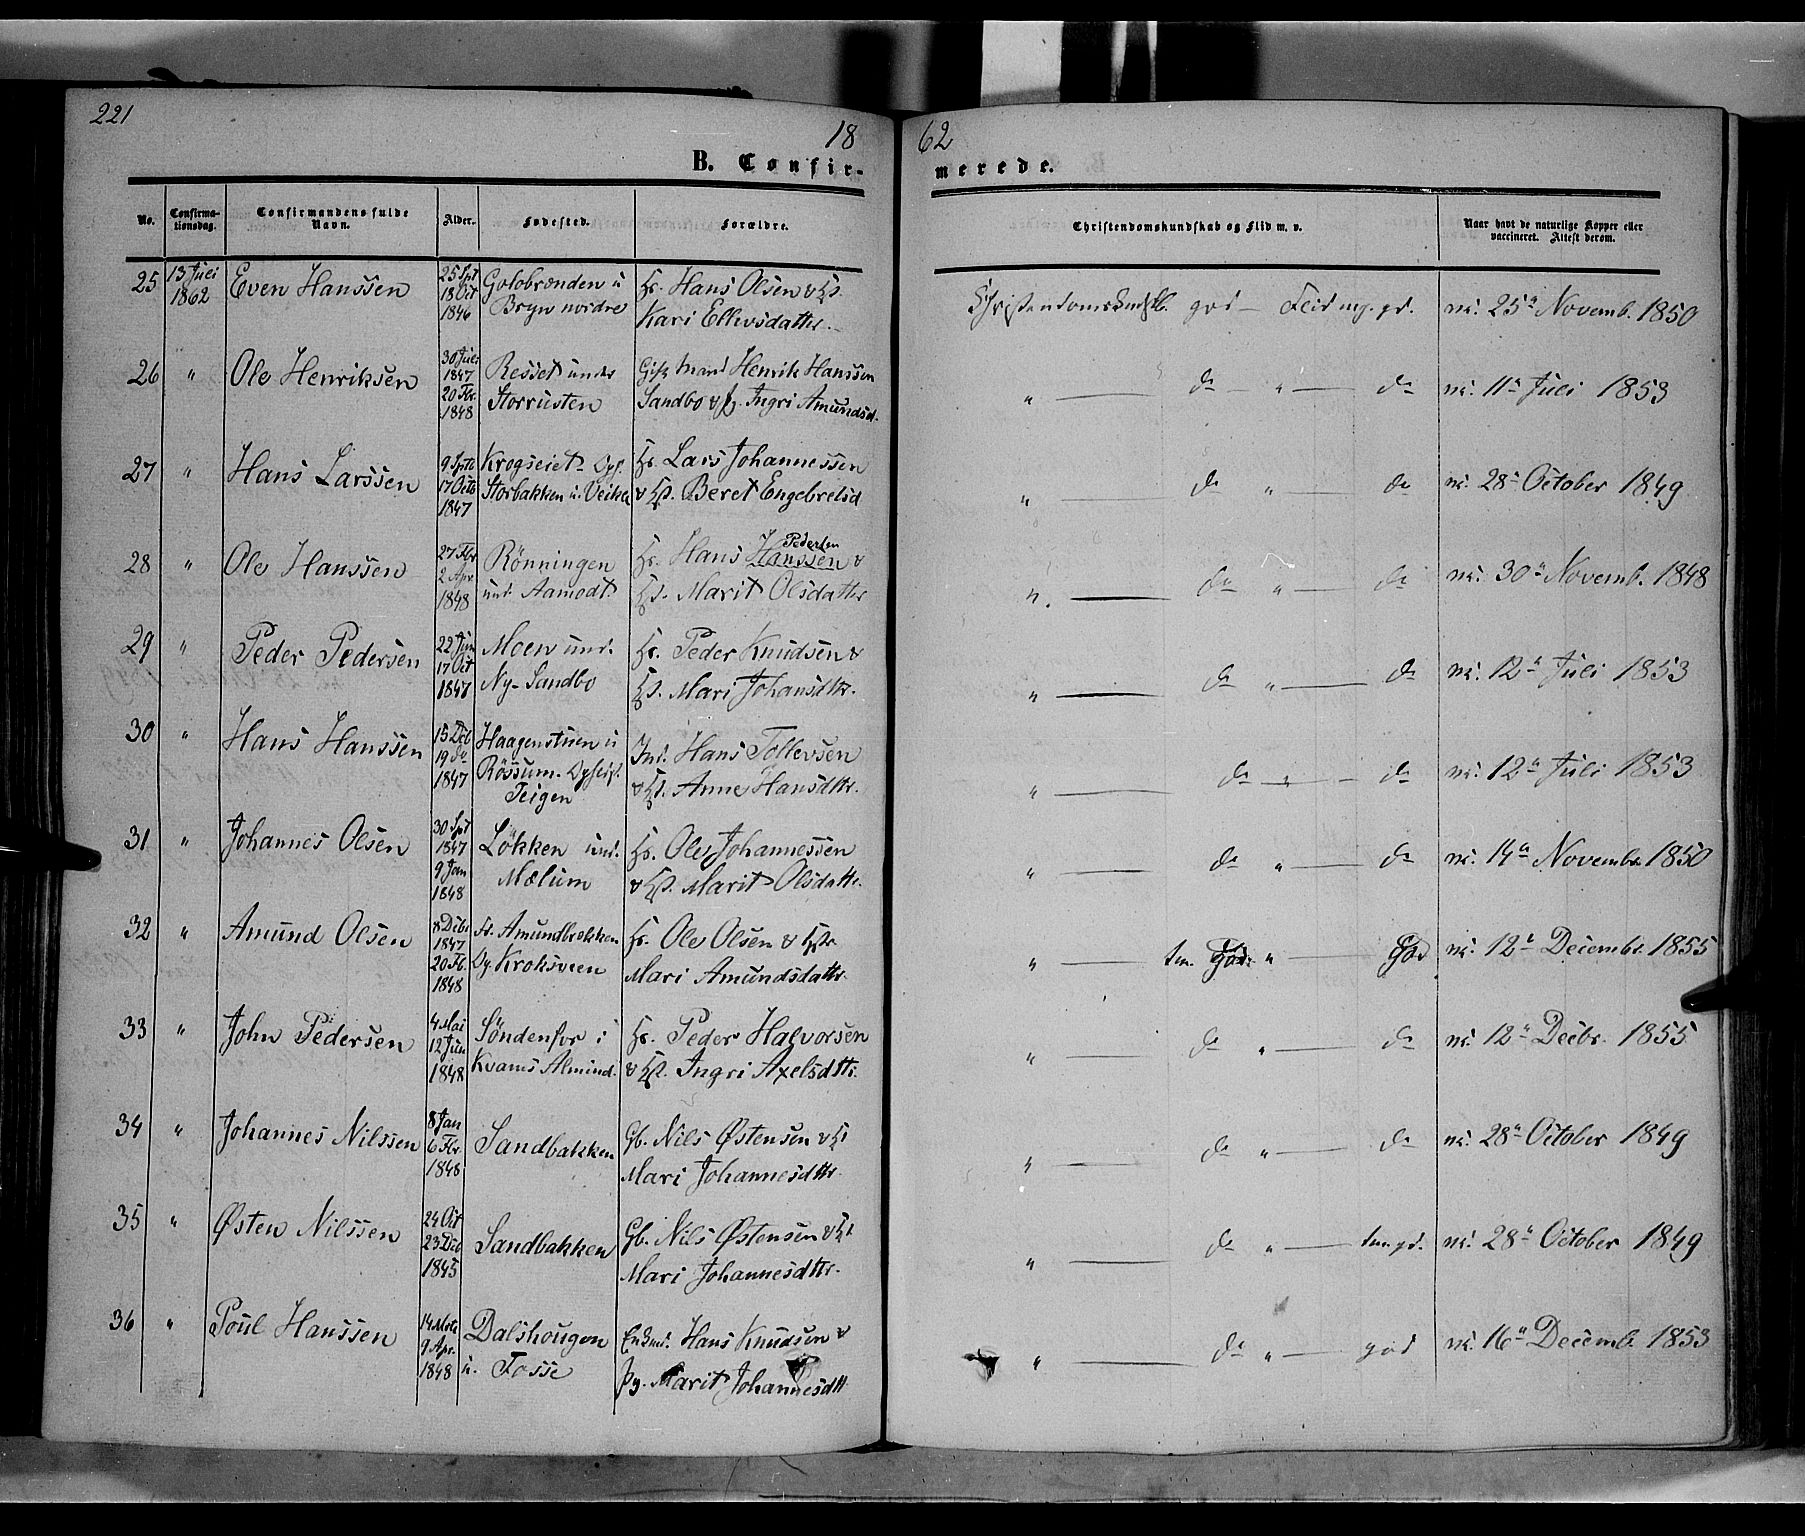 221
18
62
B. Confir-
merede.
No.
Confirma-
tionsdag.
Confirmandens fulde
Navn.
Alder.
Fødested.
Forældre.
Christendomskundskab og Flid m. v.
Naar havt de naturlige Kopper eller
vaccineret. Attest derom.
25 13 Juli 1862 Even Hanssen 25 Spt 18 Oct 1846 Golobrenden u Bryn nordre Hans Olsen & Kari Ellevsdattr. Christendomskundsk. god — Flid mg. gd. 25de Novemb. 1850
26 " Ole Henriksen 30 Juli 1847 20 Fbr. 1848 Resset under Storrusten Gift Mand Henrik Hanssen Sandbo & p. Ingri Amundsd. " — do " — do 11te Juli 1853
27 " Hans Larssen 9 Sptb 17 Octb 1847 Krogseiet Storbakken u. Veikle Lars Johannessen & Beret Engebretsd " — do " — do 28de October 1849
28 " Ole Hanssen 27 Fbr 2 Apr. 1848 Rönningen und. Aamodt Hans Hanssen Pedersen & Marit Olsdattr " — do " — do 30te Novemb. 1848
29 " Peder Pedersen 22 Jun 17 Oct 1847 Moen und. Ny-Sandbo Peder Knudsen & Mari Johansdtr. " — do " — do 12te Juli 1853
30 " Hans Hanssen 15 Dcb 19 do 1847 Haagenstuen u Rössum. Teigen Ind. Hans Tollevsen & Anne Hansdtr. " — do " — do 12te Juli 1853
31 " Johannes Olsen 30 Spt 1847 9 Jan 1848 Lökken und. Mælum Ole Johannessen & Marit Olsdattr. " — do " — do 14de Novembr. 1850
32 " Amund Olsen 8 Dcbr 1847 20 Fb. 1848 Amundbrekken Kroksveen Ole Olsen & Mari Amundsdattr. " — tm. God " — God 12te Decembr. 1855
33 " John Pedersen 4 Mai 12 Jun 1848 Söndenfor i Kvams Almind. Peder Halvorsen & Ingri Axelsdttr. " — do " — do 12te Decbr. 1855
34 " Johannes Nilssen 8 Jan 6 Fbr. 1848 Sandbakken Gb. Nils Østensen & Mari Johannesdttr. " — do " — do 28de October 1849
35 " Østen Nilssen 24 Oct 23 Dcb 1845 Sandbakken Gb. Nils Østensen & Mari Johannesdttr. " — do " — tm. gd. 28de October 1849
36 " Poul Hanssen 14 Mrts 9 Apr. 1848 Dalshougen u. Fosse Enkmd. Hans Knudsen & pg. Marit Johannesdtt " — do " — god 16de Decemb. 1853